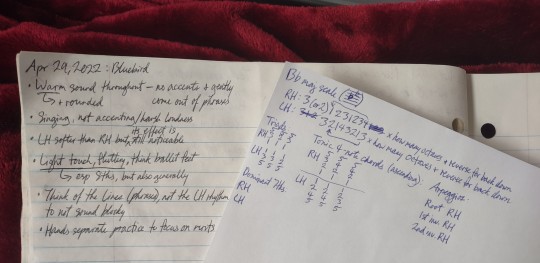 Apr 29, 2022: Bluebird
• Warm sound throughout – no accents + gently
↳ + rounded come out of phrases
• Singing, not accenting/harsh loudness
its effect is
• LH softer than RH but still noticeable
• Light touch, fluttery, think ballet feet
↳ esp 8ths, but also generally
• Think of the lines (phrases), not the LH rhythm
to not sound blocky
• Hands separate practice to focus on
Bb maj scale
RH: 3 (or 2) 1 231234 + how many octaves + reverse for back down
LH: 32143213 + how many octaves + reverse for back down
Triads
RH
LH
Tonic 4 note chords (ascending)
RH
LH
Dominant 7ths
RH
LH
Arpeggios:
Root RH
1st inv. RH
2nd inv. RH